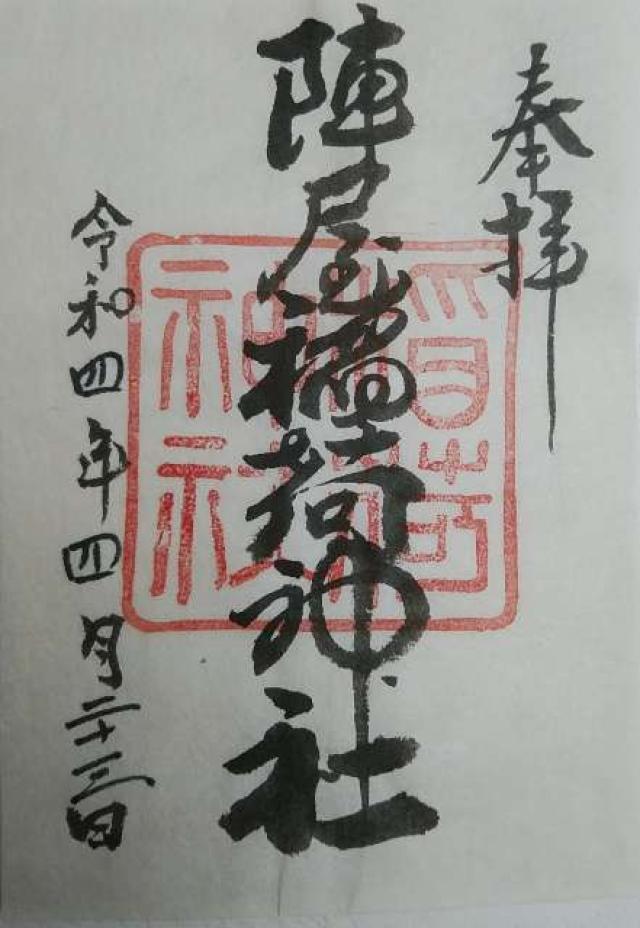 奉拝
陣屋稲荷神社
令和四年四月二十三日